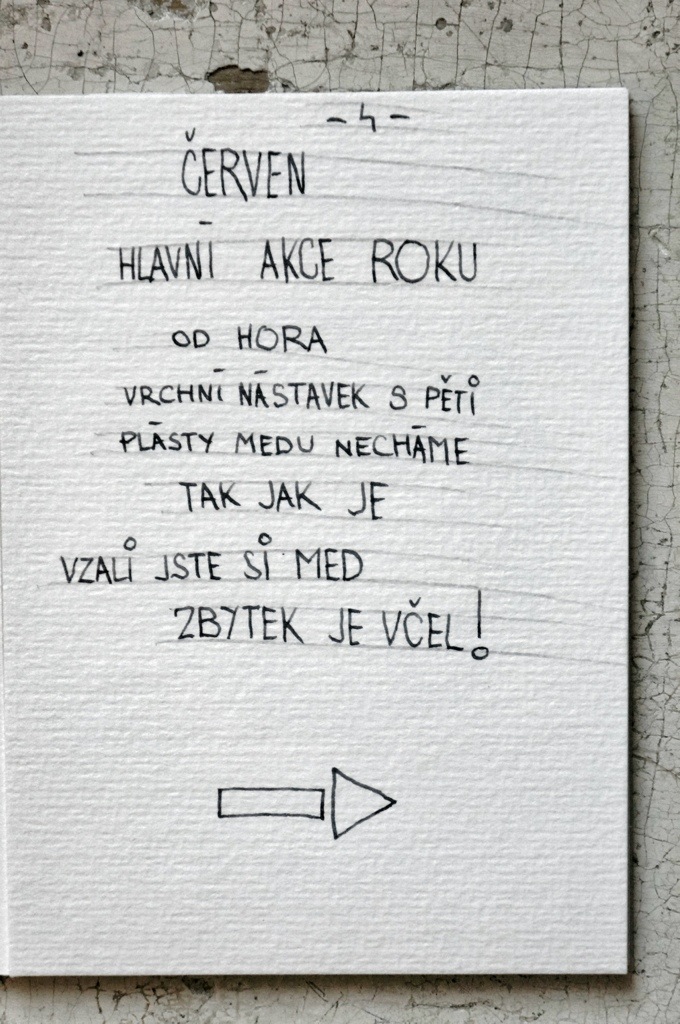 -4-
ČERVEN
HLAVNÍ AKCE ROKU
OD HORA
VRCHNÍ NÁSTAVEK S PĚTI
PLÁSTY MEDU NECHÁME
TAK JAK JE
VZALI JSTE SI MED
ZBYTEK JE VČEL!